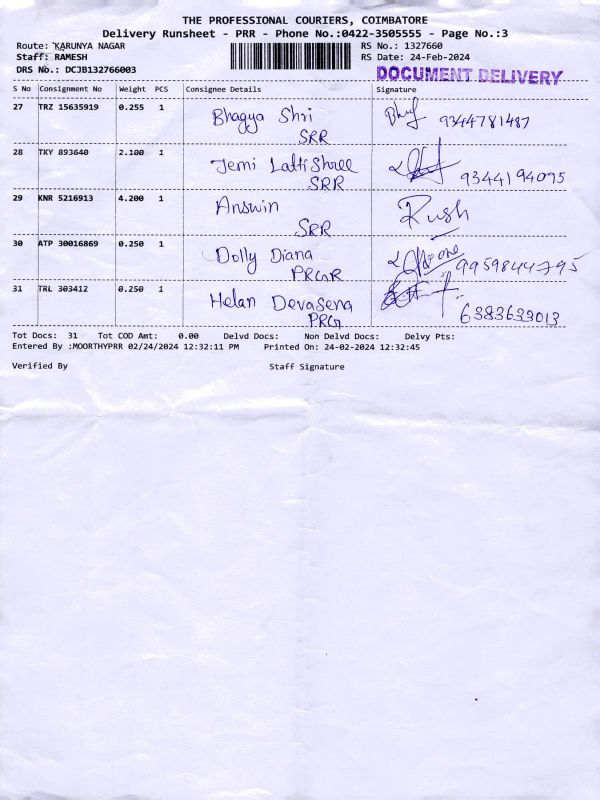 THE PROFESSIONAL COURIERS, COIMBATORE
Delivery Runsheet - PRR - Phone No.:0422-3505555 - Page No.:3
Route: KARUNYA NAGAR RS No.: 1327660
Staff: RAMESH RS Date: 24-Feb-2024
DRS No.: DCJB132766003 DOCUMENT DELIVERY
S No Consignment No Weight PCS Consignee Details Signature
27 TRZ 15635919 0.255 1 Bhagya Shri 9344781487
SRR
28 TKY 893640 2.100 1 Jemi LattiShree 9344194095
SRR
29 KNR 5216913 4.200 1 Answin Rush
SRR
30 ATP 30016869 0.250 1 Dolly Diana 9959844795
PRGR
31 TRL 303412 0.250 1 Helan Devasena 6383633013
PRG
Tot Docs: 31 Tot COD Amt: 0.00 Delvd Docs: Non Delvd Docs: Delvy Pts:
Entered By :MOORTHYPRR 02/24/2024 12:32:11 PM Printed On: 24-02-2024 12:32:45
Verified By Staff Signature